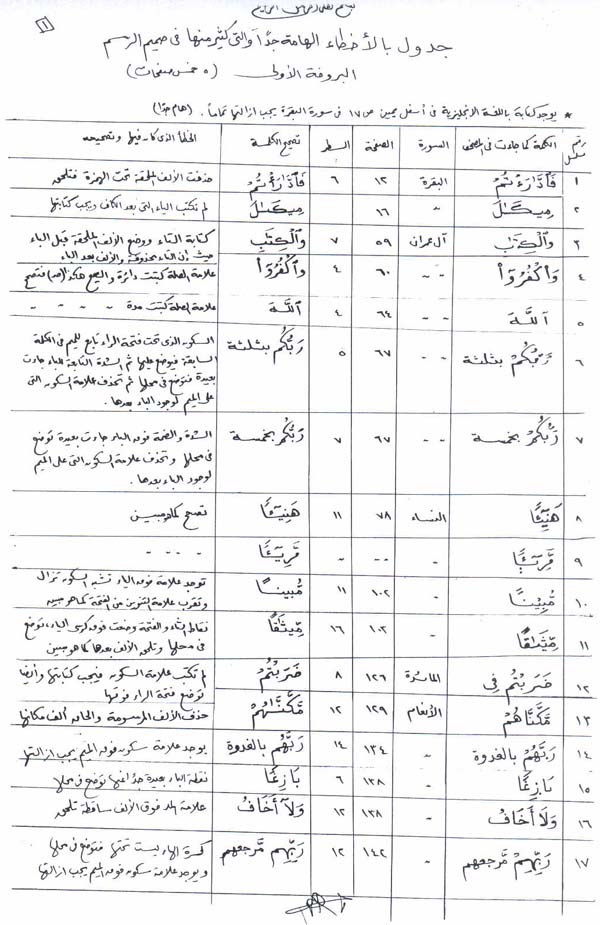 ١
جدول بالأخطاء الهامة جدًا والتى كثير منها فى صميم الرسم
البروفة الأولى (٥ خمس صفحات)
* يوجد كتابة باللغة الانجليزية فى أسفل يمين ص ١٧ فى سورة البقرة يجب ازالتها تمامًا. (هام جدًا)
رقم مسلسل الكلمة كما جاءت فى المصحف السورة الصفحة السطر تصحيح الكلمة الخطأ الذى كان فيها وتصحيحه
١ فَٱدَّٰرَءۡتُمۡ البقرة ١٢ ٦ فَٱدَّٰرَٰءۡتُمۡ حذفت الألف الملحقة تحت الهمزة فتلحق
٢ مِيكَىٰلَ " ١٦ مِيكَىٰلَ لم تكتب الياء التى بعد الكاف ويجب كتابتها
٣ وَالْكِتَٰبِ آل عمران ٥٩ ٧ وَالْكِتَٰبِ كتابة التاء ووضع الألف الملحقة قبل الباء
حيث إن التاء محذوفة والألف بعد الباء
٤ وَاكْفُرُوٓاْ " " ٦٠ ٤ وَاكْفُرُوٓاْ علامة الصلة كتبت دائرة والصحيح هكذا (صـ) فتصحح
٥ اللَّهَ " " ٦٤ ٤ اللَّهَ علامة الصلة كتبت مدة " " "
٦ رَبُّكُمْ بثلثة " " ٦٧ ٥ رَبُّكُم بثلثة السكون الذى تحت فتحة الراء تابع للميم فى الكلمة
السابقة فيوضع عليها ثم الشدة التابعة للباء جاءت
بعيدة فتوضع فى محلها ثم تحذف علامة السكون التى
على الميم لوجود الباء بعدها.
٧ رَبُّكُمْ بخمسة " " ٦٧ ٧ رَبُّكُم بخمسة الشدة والضمة فوق الباء جاءت بعيدة توضع
فى محلها وتحذف علامة السكون التى على الميم
لوجود الباء بعدها.
٨ هَنِيٓـًٔا النساء ٧٨ ١١ هَنِيٓـًٔا تصحح كما هو مبين
٩ مَّرِيٓـًٔا " " " مَّرِيٓـًٔا " " "
١٠ مُّبِينًا " ١٠٢ ١١ مُّبِينًا توجد علامة فوق الياء تشبه السكون تزال
وتقرب علامة التنوين من الفتحة كما هو مبين
١١ مِّيثَٰقًا " ١٠٣ ١٦ مِّيثَٰقًا نقاط الثاء والفتحة وضعت فوق كرسى الياء، توضع
فى محلها وتلحق الألف بعدها كما هو مبين
١٢ ضَرَبْتُمْ فِى المائدة ١٢٦ ٨ ضَرَبْتُمْ لم تكتب علامة السكون فيجب كتابتها وأيضًا
توضع فتحة الراء فوقها
١٣ مَكَّنَّاهُمْ الأنعام ١٢٩ ١٢ مَكَّنَّٰهُمْ حذف الألف المرسومة والحاق ألف مكانها
١٤ رَبَّهُمْ بالغدوة " ١٣٤ ١٤ رَبَّهُم بالغدوة يوجد علامة سكون فوق الميم يجب ازالتها
١٥ بَازِغًا " ١٣٨ ٦ بَازِغًا نقطة الباء بعيدة جدًا عنها توضع فى محلها
١٦ وَلَا أَخَافُ " ١٣٨ ١٢ وَلَآ أَخَافُ علامة المد فوق الألف ساقطة تلحق
١٧ رَبِّهِمْ مَّرجعهم " ١٤٢ ١٢ رَبِّهِم مَّرجعهم كسرة الهاء ليست تحتها فتوضع فى محلها
ويوجد علامة سكون فوق الميم يجب ازالتها